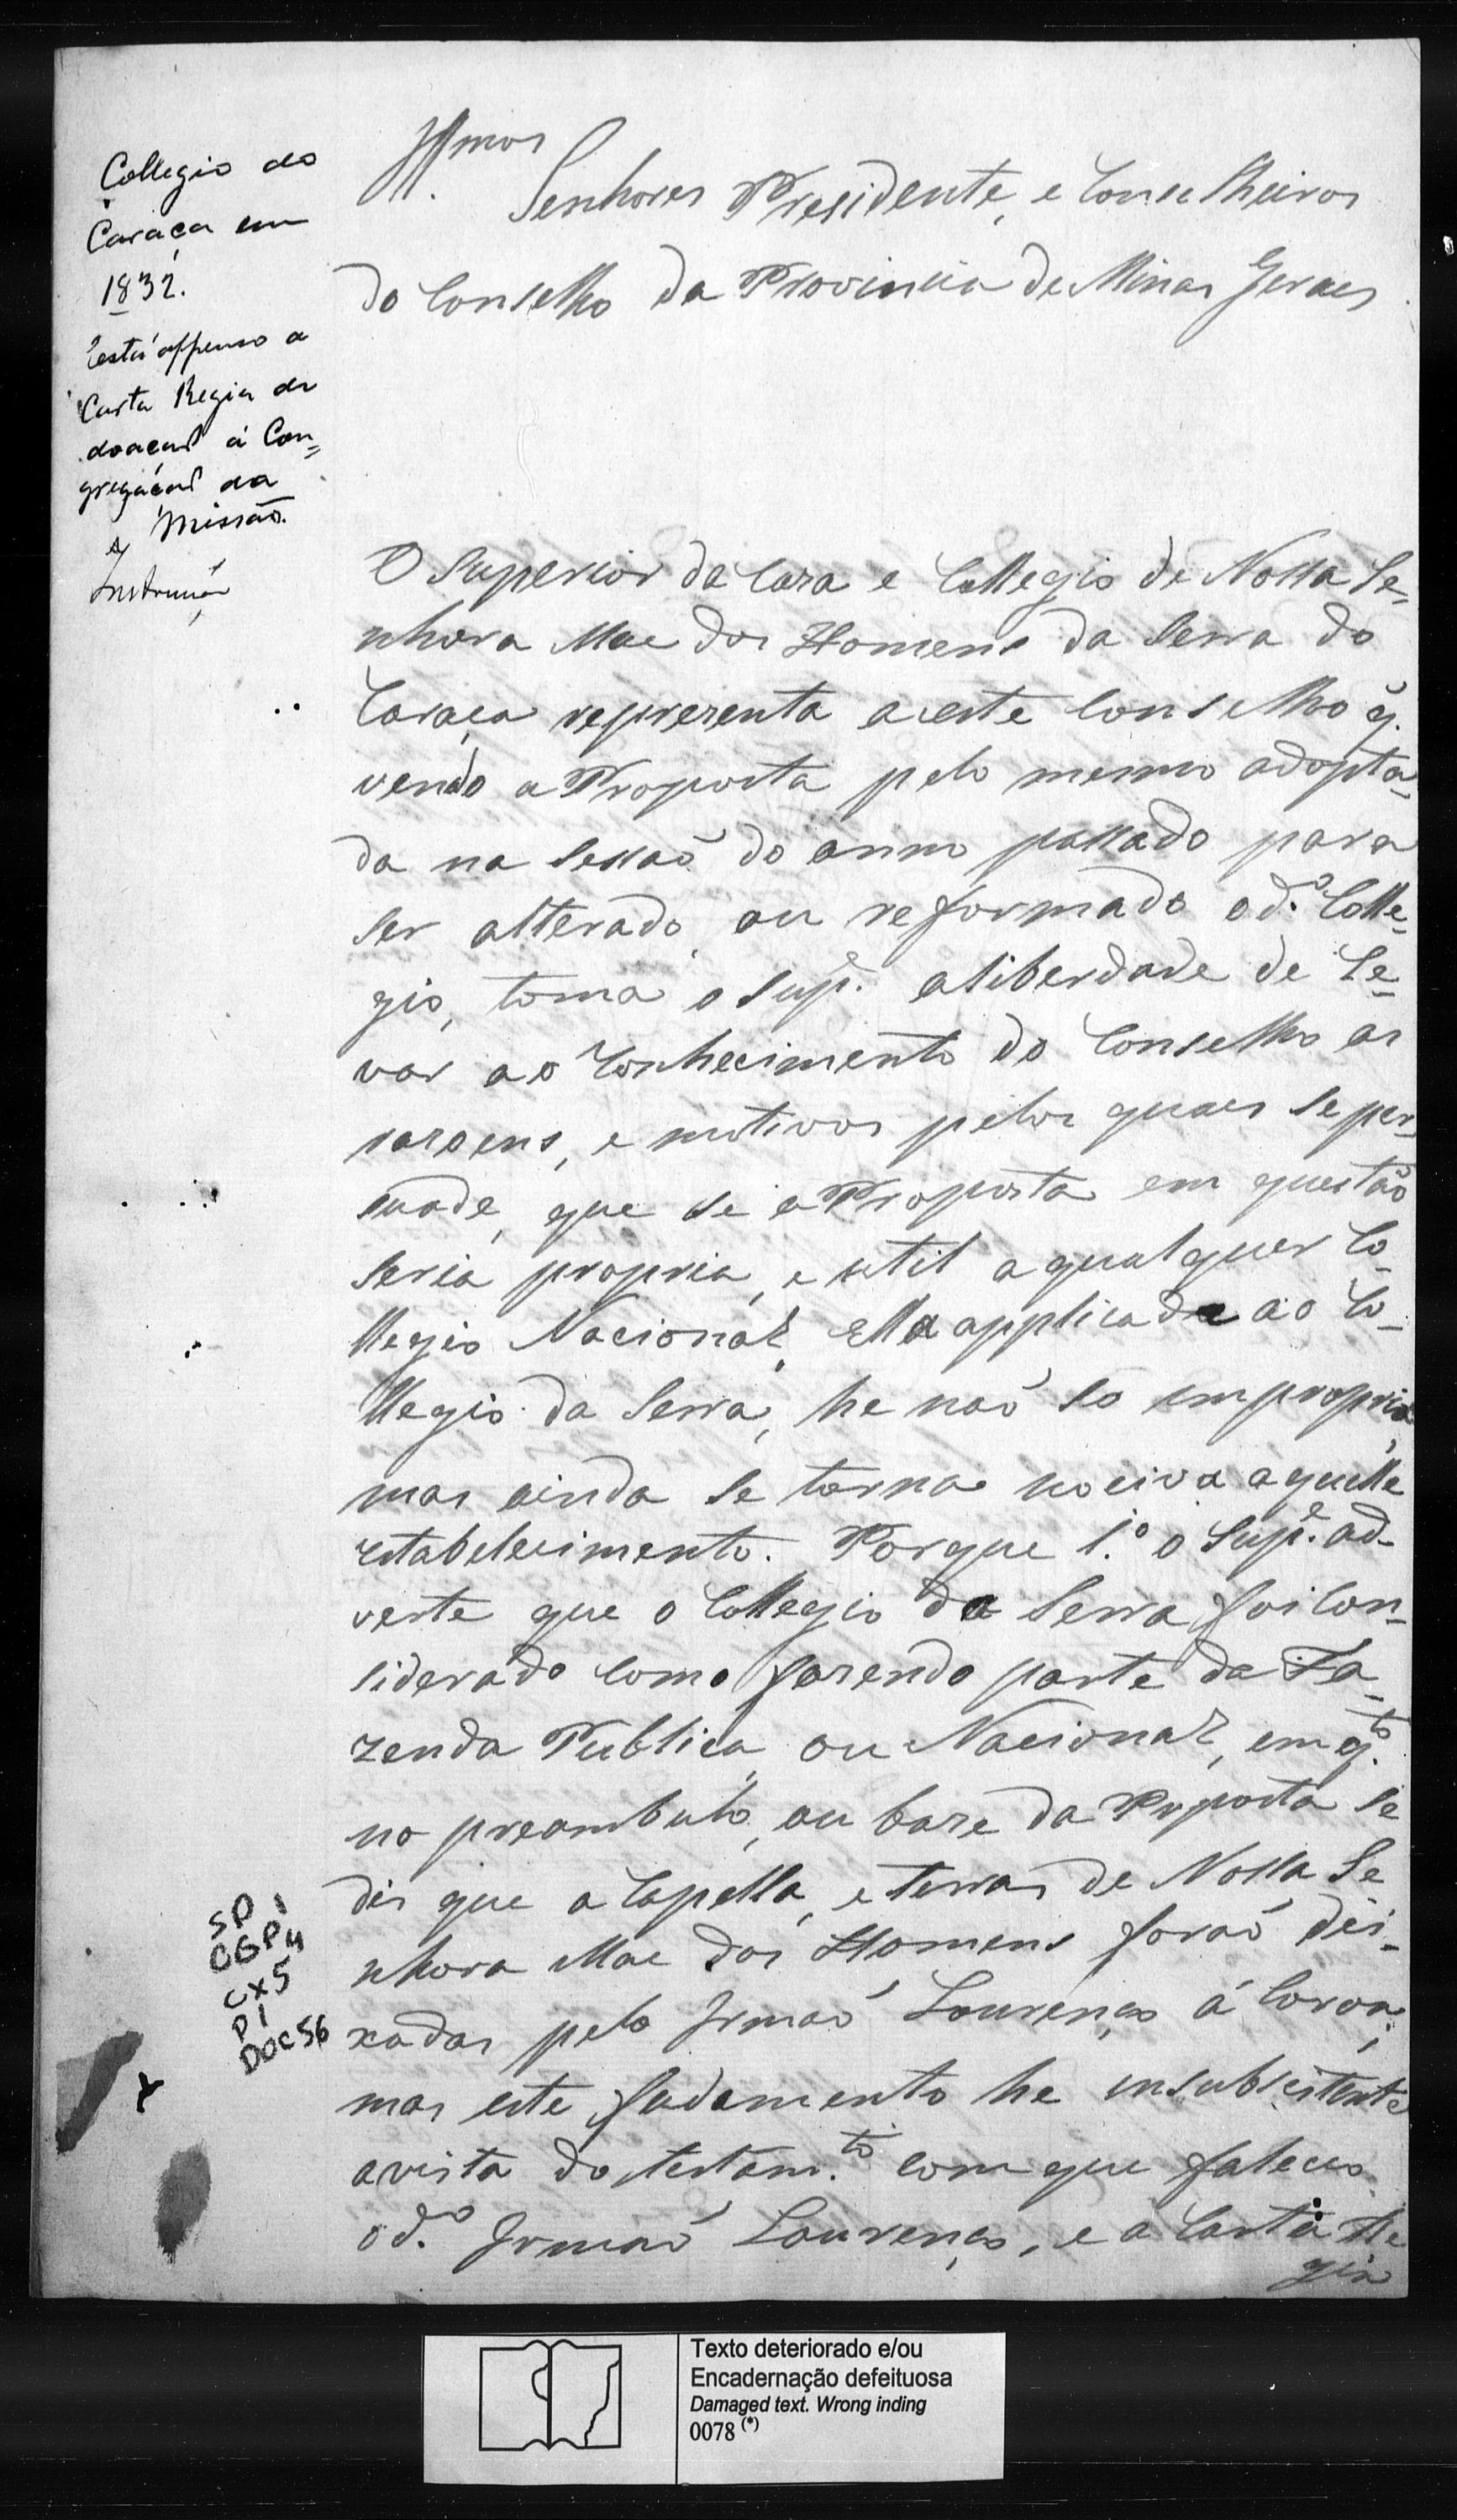 Collegio do
Caraça em
1832.
Está appenso a
Carta Regia de
doação á Con=
gregação da
Missão.
Instrucção
Illmos
Senhores Presidente, e Conselheiros
do Conselho da Provincia de Minas Geraes
O Superior da Caza e Collegio de Nossa Se-
nhora Mae dos Homens da Serra do
Caraça reprezenta a este Conselho q.
vendo a Proposta pelo mesmo adopta-
da na Sessaõ do anno passado para
ser alterado, ou reformado o d.o Colle-
gio, toma o Sup.e a liberdade de le-
var ao Conhecimento do Conselho as
razoens, e motivos pelos quaes se per-
suade, que se a Proposta em questão
seria propria, e util a qualquer Co-
llegio Nacional, ella applicada ao Co-
llegio da Serra, he naõ so impropria
mas ainda se torna nociva aquelle
estabelecimento. Porque 1.o o Sup.e ad-
verte que o Collegio da Serra foi Con-
siderado como fazendo parte da Fa-
zenda Publica, ou Nacional, em q.to
no preambulo, ou baze da Proposta se
dis que a Capella, e terras de Nossa Se
nhora Mae dos Homens foraõ dei-
xadas pelo Irmaõ Lourenço á Coroa;
mas este fudamento he insubsistente
avista do testam.to com que faleceo
o d.o Irmaõ Lourenço, e a Carta Re
gia
SP 1
CGP 4
CX5
P1
DOC 56
Texto deteriorado e/ou
Encadernação defeituosa
Damaged text. Wrong inding
0078 (*)